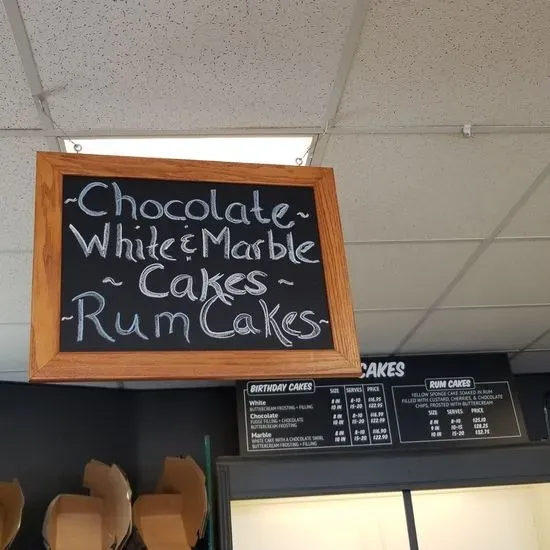 ~Chocolate~
White & Marble
~ Cakes ~
~Rum Cakes~
CAKES
BIRTHDAY CAKES SIZE SERVES PRICE
White 8 IN 8-10 $16.95
BUTTERCREAM FROSTING + FILLING 10 IN 15-20 $22.95
Chocolate 8 IN 8-10 $16.99
FUDGE FILLING + CHOCOLATE 10 IN 15-20 $22.99
BUTTERCREAM FROSTING
Marble 8 IN 8-10 $16.99
WHITE CAKE WITH A CHOCOLATE SWIRL 10 IN 15-20 $22.99
BUTTERCREAM FROSTING + FILLING
RUM CAKES
YELLOW SPONGE CAKE SOAKED IN RUM
FILLED WITH CUSTARD, CHERRIES, & CHOCOLATE
CHIPS, FROSTED WITH BUTTERCREAM
SIZE SERVES PRICE
8 IN 8-10 $25.10
9 IN 10-15 $28.25
10 IN 15-20 $32.75